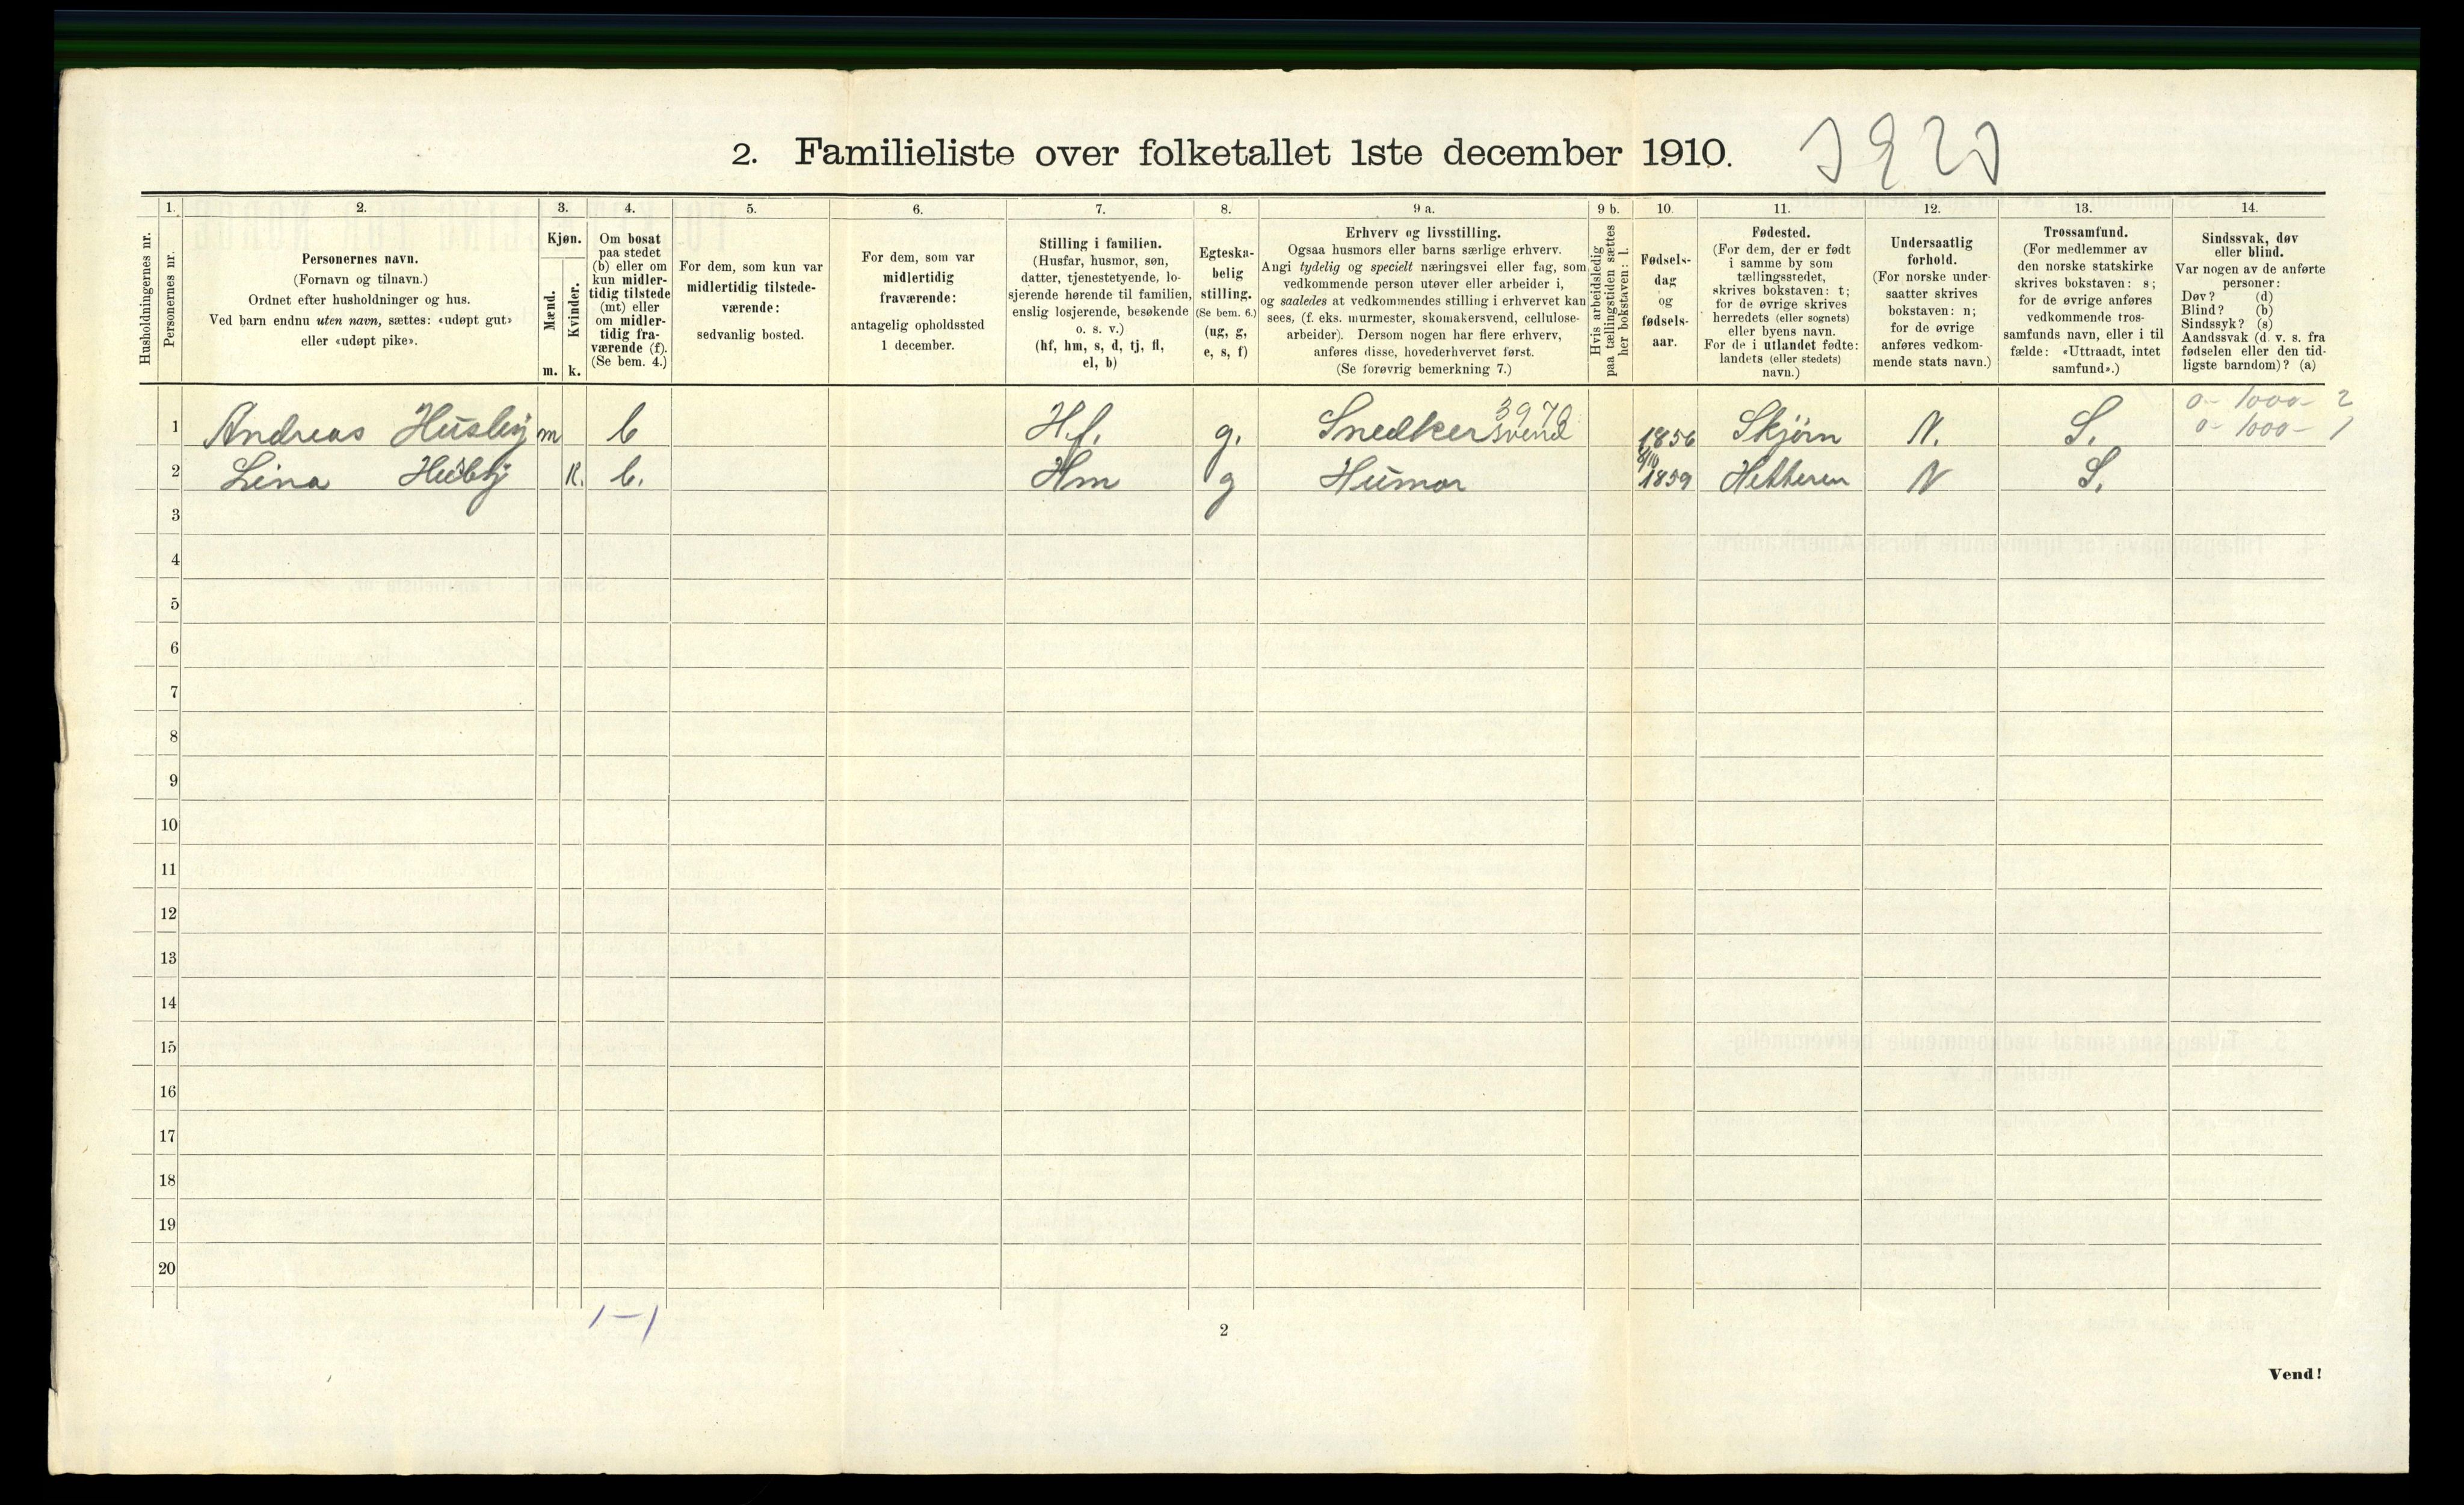 2. Familieliste over folketallet 1ste december 1910.
1. 2. 3. 4. 5. 6. 7. 8. 9 a. 9 b. 10. 11. 12. 13. 14.
Husholdningernes nr.
Personernes nr.
Personernes navn.
(Fornavn og tilnavn.)
Ordnet efter husholdninger og hus.
Ved barn endnu uten navn, sættes: «udøpt gut»
eller «udøpt pike».
Kjøn.
Mænd.
Kvinder.
m. k.
Om bosat
paa stedet
(b) eller om
kun midler-
tidig tilstede
(mt) eller
om midler-
tidig fra-
værende (f).
(Se bem. 4.)
For dem, som kun var
midlertidig tilstede-
værende:
sedvanlig bosted.
For dem, som var
midlertidig
fraværende:
antagelig opholdssted
1 december.
Stilling i familien.
(Husfar, husmor, søn,
datter, tjenestetyende, lo-
sjerende hørende til familien,
enslig losjerende, besøkende
o. s. v.)
(hf, hm, s, d, tj, fl,
el, b)
Egteska-
belig
stilling.
(Se bem. 6.)
(ug, g,
e, s, f)
Erhverv og livsstilling.
Ogsaa husmors eller barns særlige erhverv.
Angi tydelig og specielt næringsvei eller fag, som
vedkommende person utøver eller arbeider i,
og saaledes at vedkommendes stilling i erhvervet kan
sees, (f. eks. murmester, skomakersvend, cellulose-
arbeider). Dersom nogen har flere erhverv,
anføres disse, hovederhvervet først.
(Se forøvrig bemerkning 7.)
Hvis arbeidsledig
paa tællingstiden sættes
her bokstaven: l.
Fødsels-
dag
og
fødsels-
aar.
Fødested.
(For dem, der er født
i samme by som
tællingsstedet,
skrives bokstaven: t;
for de øvrige skrives
herredets (eller sognets)
eller byens navn.
For de i utlandet fødte:
landets (eller stedets)
navn.)
Undersaatlig
forhold.
(For norske under-
saatter skrives
bokstaven: n;
for de øvrige
anføres vedkom-
mende stats navn.)
Trossamfund.
(For medlemmer av
den norske statskirke
skrives bokstaven: s;
for de øvrige anføres
vedkommende tros-
samfunds navn, eller i til
fælde: «Uttraadt, intet
samfund».)
Sindssvak, døv
eller blind.
Var nogen av de anførte
personer:
Døv? (d)
Blind? (b)
Sindssyk? (s)
Aandssvak (d. v. s. fra
fødselen eller den tid-
ligste barndom)? (a)
3970 0- 1000- 2
1 Andreas Husby m b Hf. g. Snedker svend 1856 Skjørn N. S. 0- 1000- 1
2 Lina Husby K. b. Hm g Husmor 1859 Hitteren N S.
3
4
5
6
7
8
9
10
11
12
13
14
15
16
17
18
19
20
1-1
2
Vend!